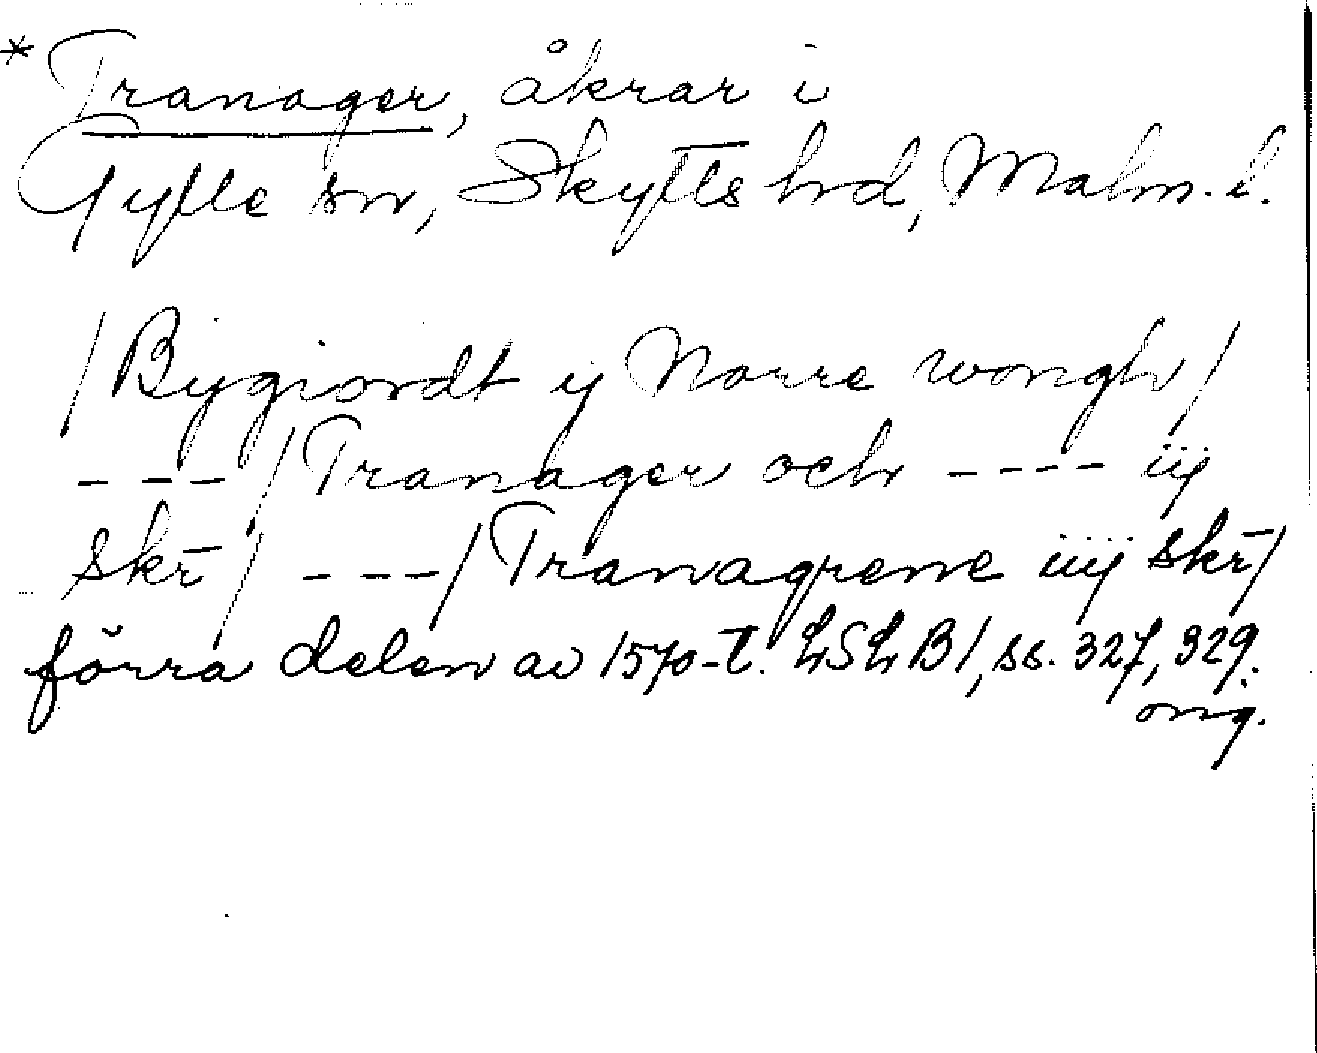 * Tranager, åkrar i
Gylle sn, Skytts hd, Malm. l.
/Bygiordt y Norre wongh/
- - - /Tranager och - - - - iij
skr̄/ - - -/Tranagrene iiij skr̄/
förra delen av 1570-t. LSLB1, ss. 327, 329.
orig.